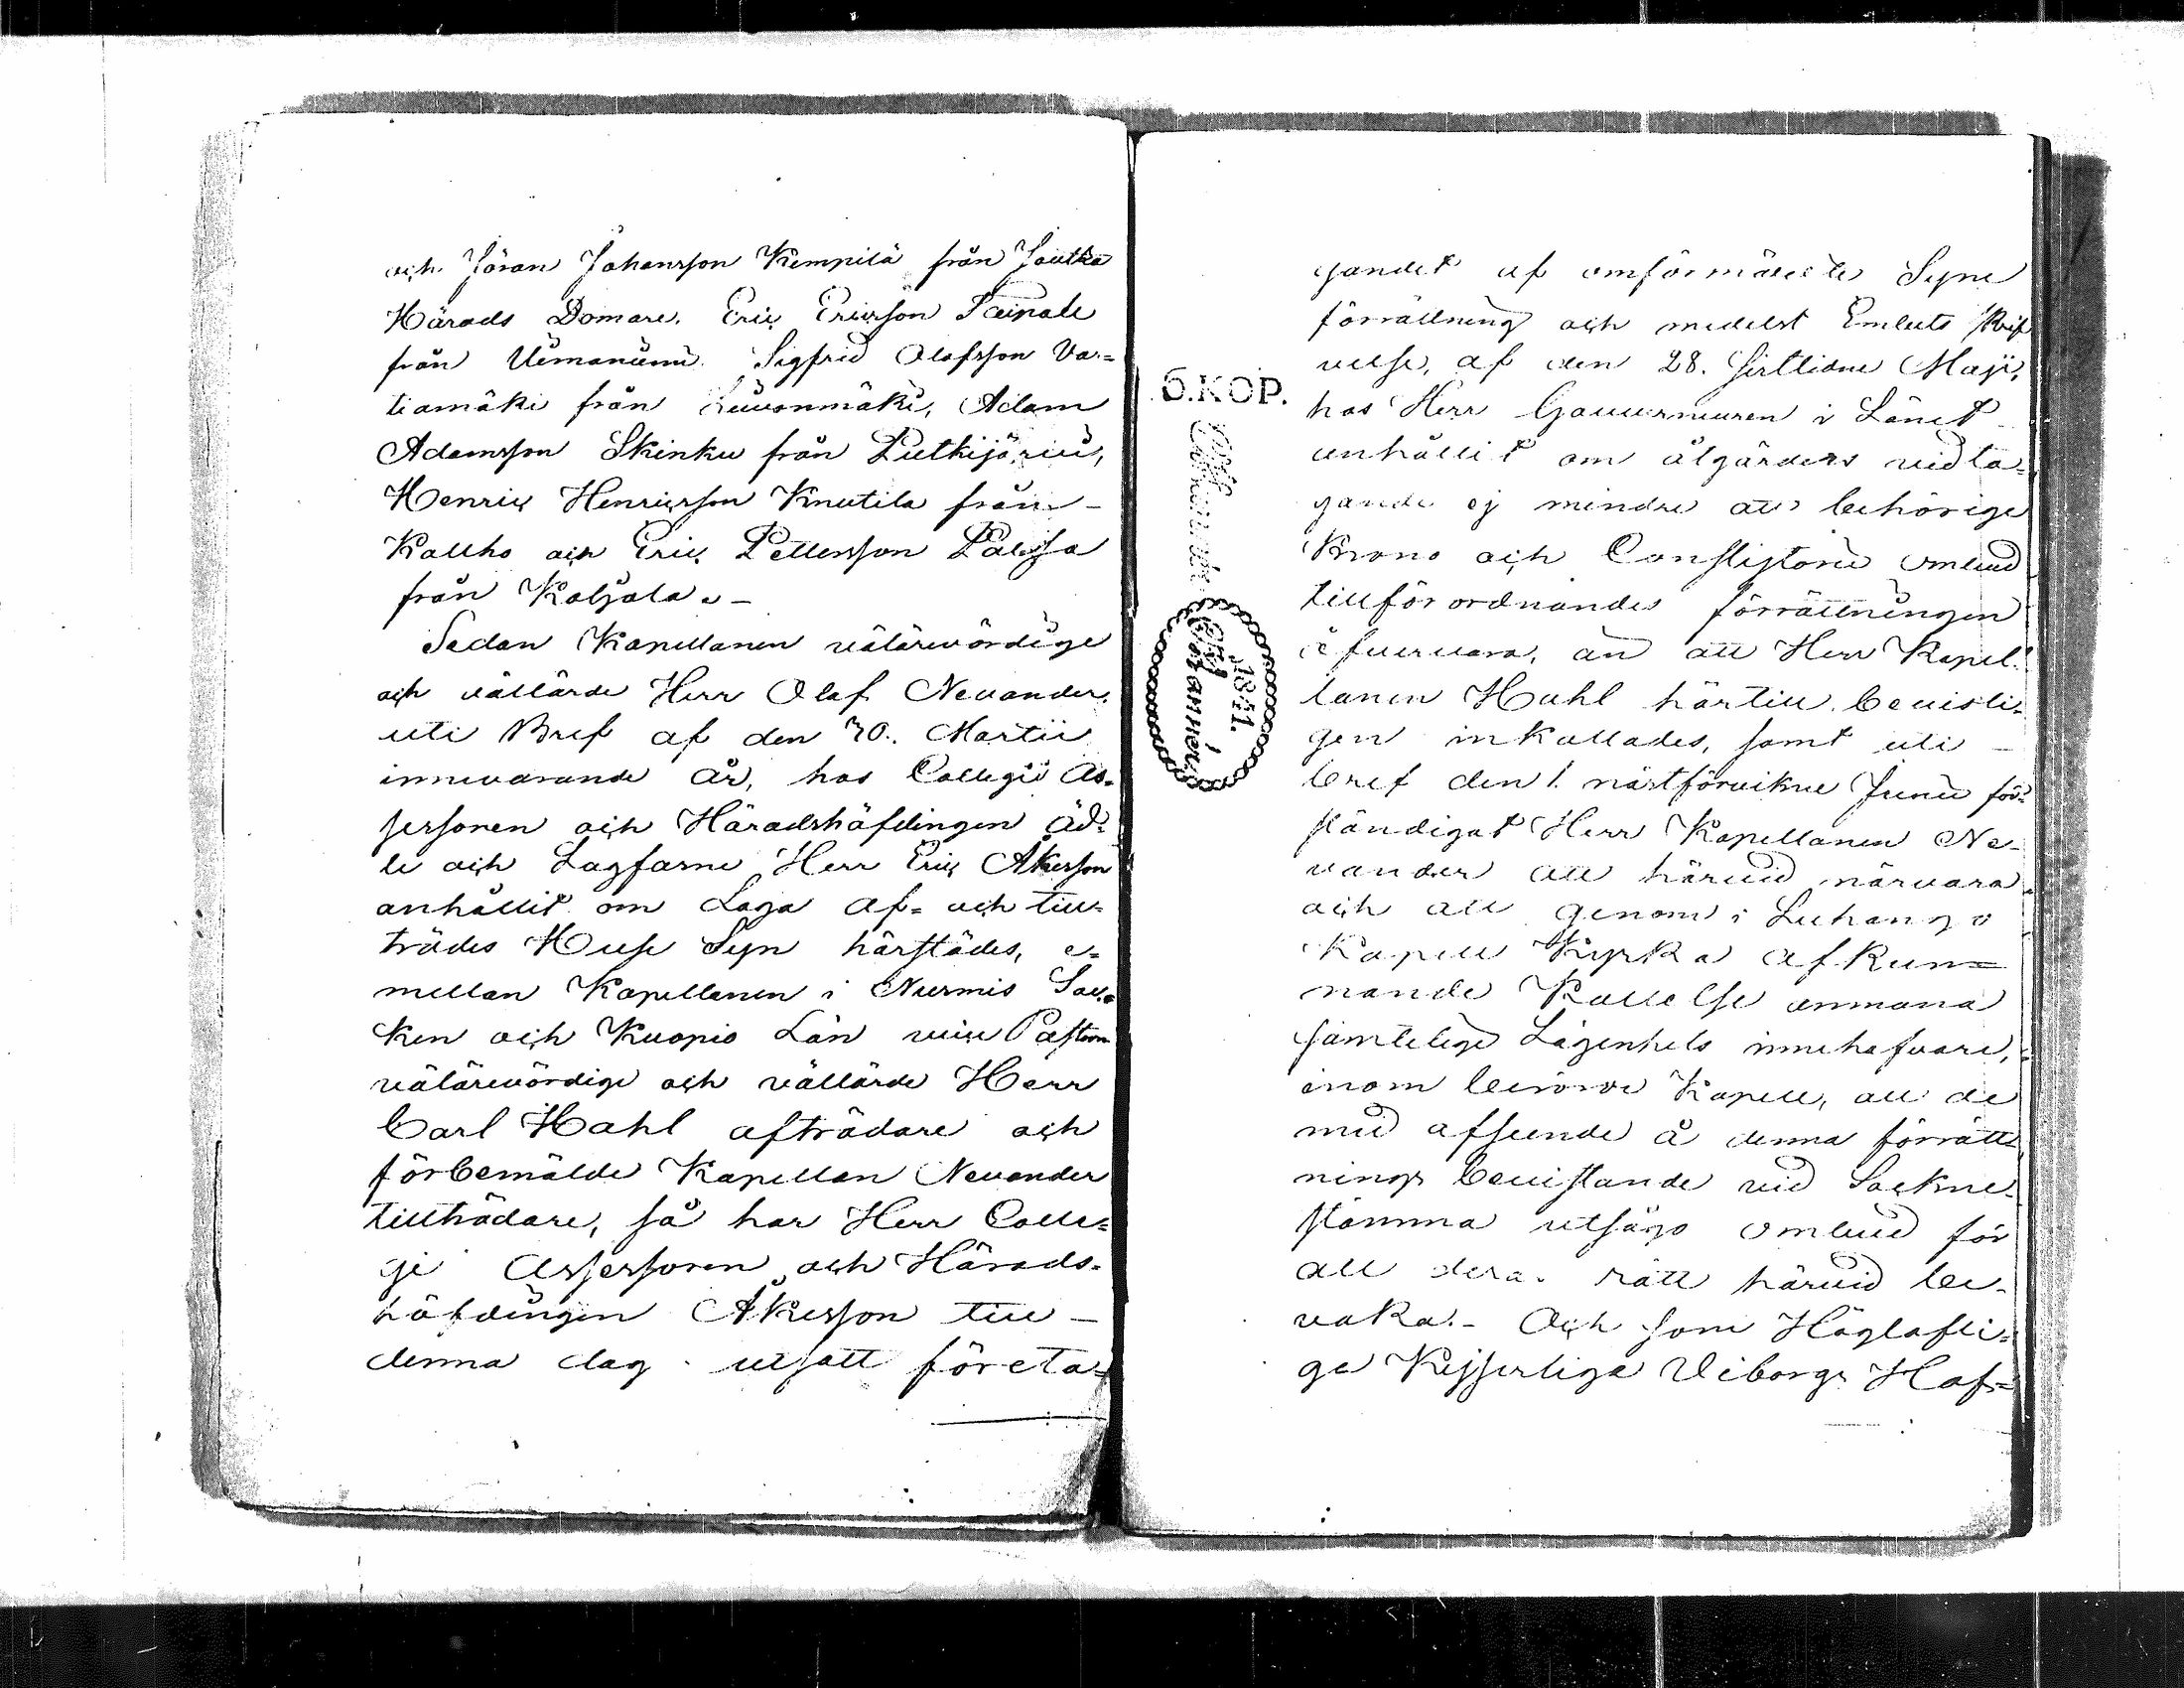 och Jöran Johansson Kempilä från Joutka
Härads Domare. Eric Ericsson Taipale
från Uimaniemi. Sigfrid Olofsson Va-
tiamäki från Leivonmäki, Adam
Adamsson Skinku från Putkijärvi,
Henric Henricsson Knutila från -
Kalho och Eric Pettersson Palssa
från Koljola. -
Sedan Kapellanen välärevördige
och vällärde Herr Olof Nevander.
uti Bref af den 30. Martii
innevarande År, hos Collegii As-
sessoren och Häradshöfdingen äd-
le och Lagfarne Herr Eric Åkesson
anhållit om Laga af- och till-
trädes Huse Syn härstädes, e-
mellan Kapellanen i Nurmis Soc-
ken och Kuopio Län vice Pastorn
välärevördige och vällärde Herr
Carl Hahl afträdare och
förbemälde Kapellan Nevander
tillträdare, så har Herr Colle-
gi Assessoren och Härads-
höfdingen Åkesson till -
denna dag utsatt företa-
gandet af omförmälte Syne
förrättning och medelst Embets skrif
velse, af den 28. sistlidne Maji,
6.KOP.
hos Herr Gouverneuren i Länet
anhållit om åtgärders vidta-
gande ej mindre att behörige
Krono och Consistorii Ombud
tillförordnandes förrättningen
öfvervara, än att Herr Kapel-
lanen Hahl härtill bevisli-
gen inkallades, samt uti -
bref den 1. nästförvikne Junii för-
ständigat Herr Kapellanen Ne-
vander att härvid närvara
och att genom i Luhango
Kapell Kyrka afkun-
nande Kallelse anmana
samtelige Lägenhets innehafvare,
inom berörde Kapell, att de
med afseende å denna förrätt-
nings bevistande vid Sockne-
stämma utsågo ombud för
att dera. rätt härvid be-
vaka. - Och som Höglofli-
ge Kejserliga Viborgs Hof-
1841.